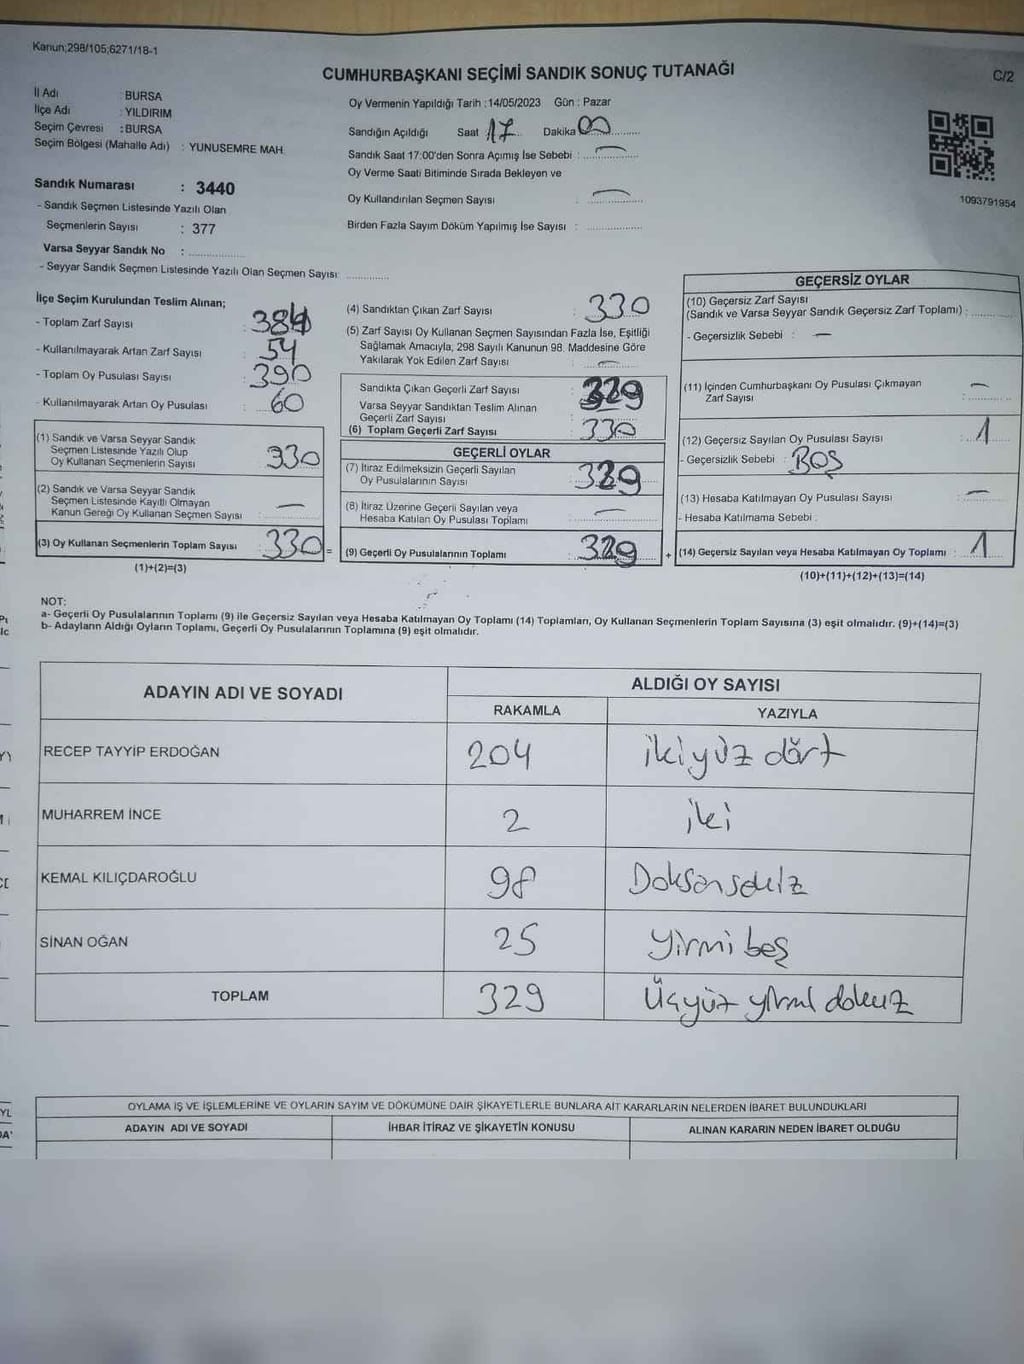 Kanun;298/105;6271/18-1
CUMHURBAŞKANI SEÇİMİ SANDIK SONUÇ TUTANAĞI
C/2
İl Adı : BURSA
İlçe Adı : YILDIRIM
Seçim Çevresi : BURSA
Seçim Bölgesi (Mahalle Adı) : YUNUSEMRE MAH.
Oy Vermenin Yapıldığı Tarih : 14/05/2023 Gün : Pazar
Sandığın Açıldığı Saat 17 Dakika 00
Sandık Saat 17:00'den Sonra Açımış İse Sebebi : —
Oy Verme Saati Bitiminde Sırada Bekleyen ve
Oy Kullandırılan Seçmen Sayısı : —
Birden Fazla Sayım Döküm Yapılmış İse Sayısı : ................
1093791954
Sandık Numarası : 3440
- Sandık Seçmen Listesinde Yazılı Olan
Seçmenlerin Sayısı : 377
Varsa Seyyar Sandık No : ................
- Seyyar Sandık Seçmen Listesinde Yazılı Olan Seçmen Sayısı: ............
İlçe Seçim Kurulundan Teslim Alınan;
- Toplam Zarf Sayısı : 384
- Kullanılmayarak Artan Zarf Sayısı : 54
- Toplam Oy Pusulası Sayısı : 390
- Kullanılmayarak Artan Oy Pusulası : 60
(1) Sandık ve Varsa Seyyar Sandık
Seçmen Listesinde Yazılı Olup
Oy Kullanan Seçmenlerin Sayısı : 330
(2) Sandık ve Varsa Seyyar Sandık
Seçmen Listesinde Kayıtlı Olmayan
Kanun Gereği Oy Kullanan Seçmen Sayısı : —
(3) Oy Kullanan Seçmenlerin Toplam Sayısı : 330 =
(1)+(2)=(3)
(4) Sandıktan Çıkan Zarf Sayısı : 330
(5) Zarf Sayısı Oy Kullanan Seçmen Sayısından Fazla İse, Eşitliği
Sağlamak Amacıyla, 298 Sayılı Kanunun 98. Maddesine Göre
Yakılarak Yok Edilen Zarf Sayısı : —
Sandıkta Çıkan Geçerli Zarf Sayısı : 329
Varsa Seyyar Sandıktan Teslim Alınan
Geçerli Zarf Sayısı :
(6) Toplam Geçerli Zarf Sayısı : 330
GEÇERLİ OYLAR
(7) İtiraz Edilmeksizin Geçerli Sayılan
Oy Pusulalarının Sayısı : 329
(8) İtiraz Üzerine Geçerli Sayılan veya
Hesaba Katılan Oy Pusulası Toplamı : —
(9) Geçerli Oy Pusulalarının Toplamı : 329 +
GEÇERSİZ OYLAR
(10) Geçersiz Zarf Sayısı
(Sandık ve Varsa Seyyar Sandık Geçersiz Zarf Toplamı) : ............
- Geçersizlik Sebebi : —
(11) İçinden Cumhurbaşkanı Oy Pusulası Çıkmayan
Zarf Sayısı : —
(12) Geçersiz Sayılan Oy Pusulası Sayısı : 1
- Geçersizlik Sebebi : BOŞ
(13) Hesaba Katılmayan Oy Pusulası Sayısı : —
- Hesaba Katılmama Sebebi :
(14) Geçersiz Sayılan veya Hesaba Katılmayan Oy Toplamı : 1
(10)+(11)+(12)+(13)=(14)
NOT:
a- Geçerli Oy Pusulalarının Toplamı (9) ile Geçersiz Sayılan veya Hesaba Katılmayan Oy Toplamı (14) Toplamları, Oy Kullanan Seçmenlerin Toplam Sayısına (3) eşit olmalıdır. (9)+(14)=(3)
b- Adayların Aldığı Oyların Toplamı, Geçerli Oy Pusulalarının Toplamına (9) eşit olmalıdır.
ADAYIN ADI VE SOYADI
ALDIĞI OY SAYISI
RAKAMLA YAZIYLA
RECEP TAYYİP ERDOĞAN 204 ikiyüz dört
MUHARREM İNCE 2 iki
KEMAL KILIÇDAROĞLU 98 Doksansekiz
SİNAN OĞAN 25 Yirmi beş
TOPLAM 329 Üçyüz yirmi dokuz
OYLAMA İŞ VE İŞLEMLERİNE VE OYLARIN SAYIM VE DÖKÜMÜNE DAİR ŞİKAYETLERLE BUNLARA AİT KARARLARIN NELERDEN İBARET BULUNDUKLARI
ADAYIN ADI VE SOYADI İHBAR İTİRAZ VE ŞİKAYETİN KONUSU ALINAN KARARIN NEDEN İBARET OLDUĞU